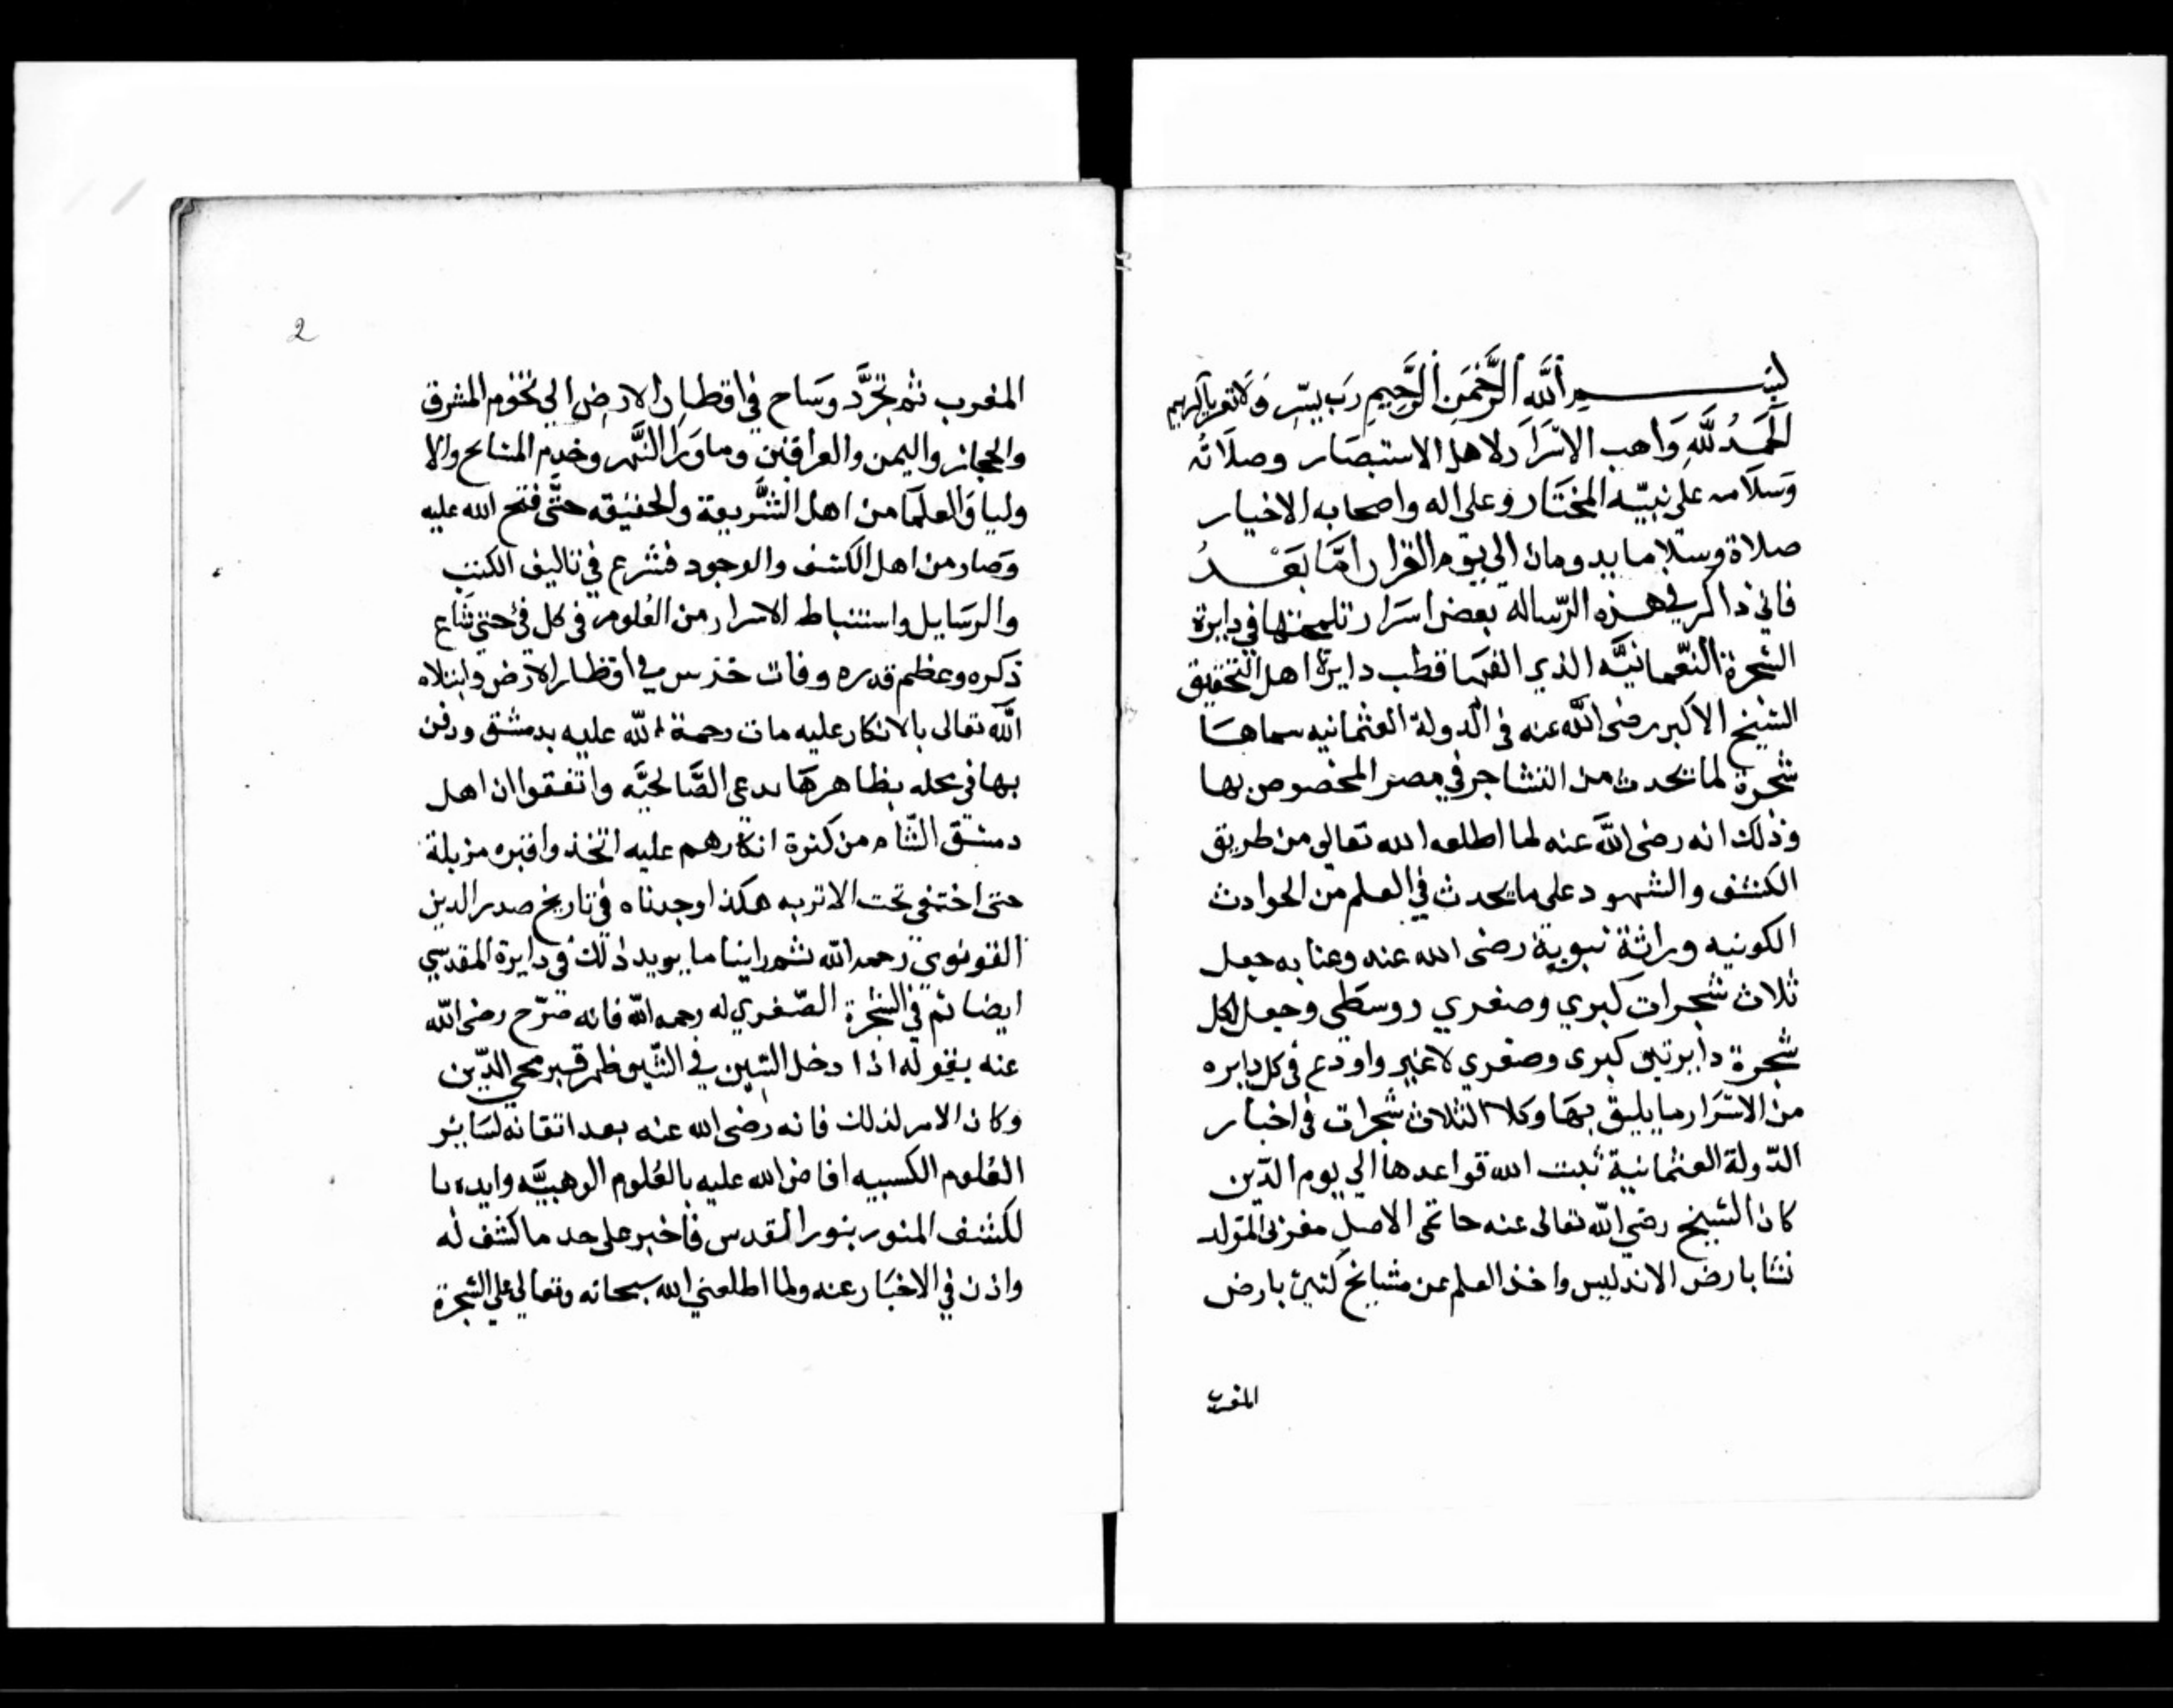 بسم الله الرحمن الرحيم رب يسر ولا تعسر يا كريم
الحمد لله واهب الاسرار لاهل الاستبصار وصلاته
وسلامه على نبيه المختار وعلى اله واصحابه الاخيار
صلاة وسلاما يدومان الى يوم القرار اما بعد
فاني ذاكر في هذه الرسالة بعض اسرار في دايرة
الشجرة النعمانية الذي الفها قطب دايرة اهل التحقيق
الشيخ الاكبر رضى الله عنه في الدولة العثمانيه سماها
شجرة لما يحدث من التشاجر في مصر المخصوص بها
وذلك انه رضى الله عنه لما اطلعه الله تعالى من طريق
الكشف والشهود على ما يحدث في العلم من الحوادث
الكونيه وراثة نبوية رضى الله عنه وعنا به جعل
ثلاث شجرات كبري وصغري ووسطى وجعل لكل
شجرة دايرتين كبرى وصغري لا غير واودع في كل دايره
من الاسرار ما يليق بها وكلا الثلاث شجرات في اخبار
الدولة العثمانية ثبت الله قواعدها الى يوم الدين
كان الشيخ رضى الله تعالى عنه حاتمى الاصل مغربى المولد
نشا بارض الاندليس واخذ العلم عن مشايخ بارض
المغرب
2
المغرب ثم تجرد وساح في اقطار الارض الى تخوم المشرق
والحجاز واليمن والعراقين وما ورا النهر وخدم المشايخ والا
وليا والعلما من اهل الشريعة والحقيقه حتى فتح الله عليه
وصار من اهل الكشف والوجود فشرع في تاليف الكتب
والرسايل واستنباط الاسرار من العلوم في كل حتى شاع
ذكره وعظم قدره وفات في اقطار الارض وابتلاه
الله تعالى بالانكار عليه مات رحمة الله عليه بدمشق ودفن
بها في محله بظاهرها تدعى الصالحيه واتفقوا ان اهل
دمشق الشام من كثرة انكارهم عليه اتخذوا قبره مزبلة
حتى اختفى تحت الاتربه هكذا وجدناه في تاريخ صدر الدين
القونوي رحمه الله ثم راينا ما يويد ذلك في دايرة المقدسي
ايضا ثم في الشجرة الصغري له رحمه الله فانه صرح رضى الله
عنه بقوله اذا دخل السين في الشين ظهر قبر محي الدين
وكان الامر لذلك فانه رضى الله عنه بعد اتقانه لساير
العلوم الكسبيه افاض الله عليه بالعلوم الوهبيه وايده با
لكشف المنور بنور القدس فاخبر على حد ما كشف له
واذن في الاخبار عنه ولما اطلعني الله سبحانه وتعالى على الشجرة